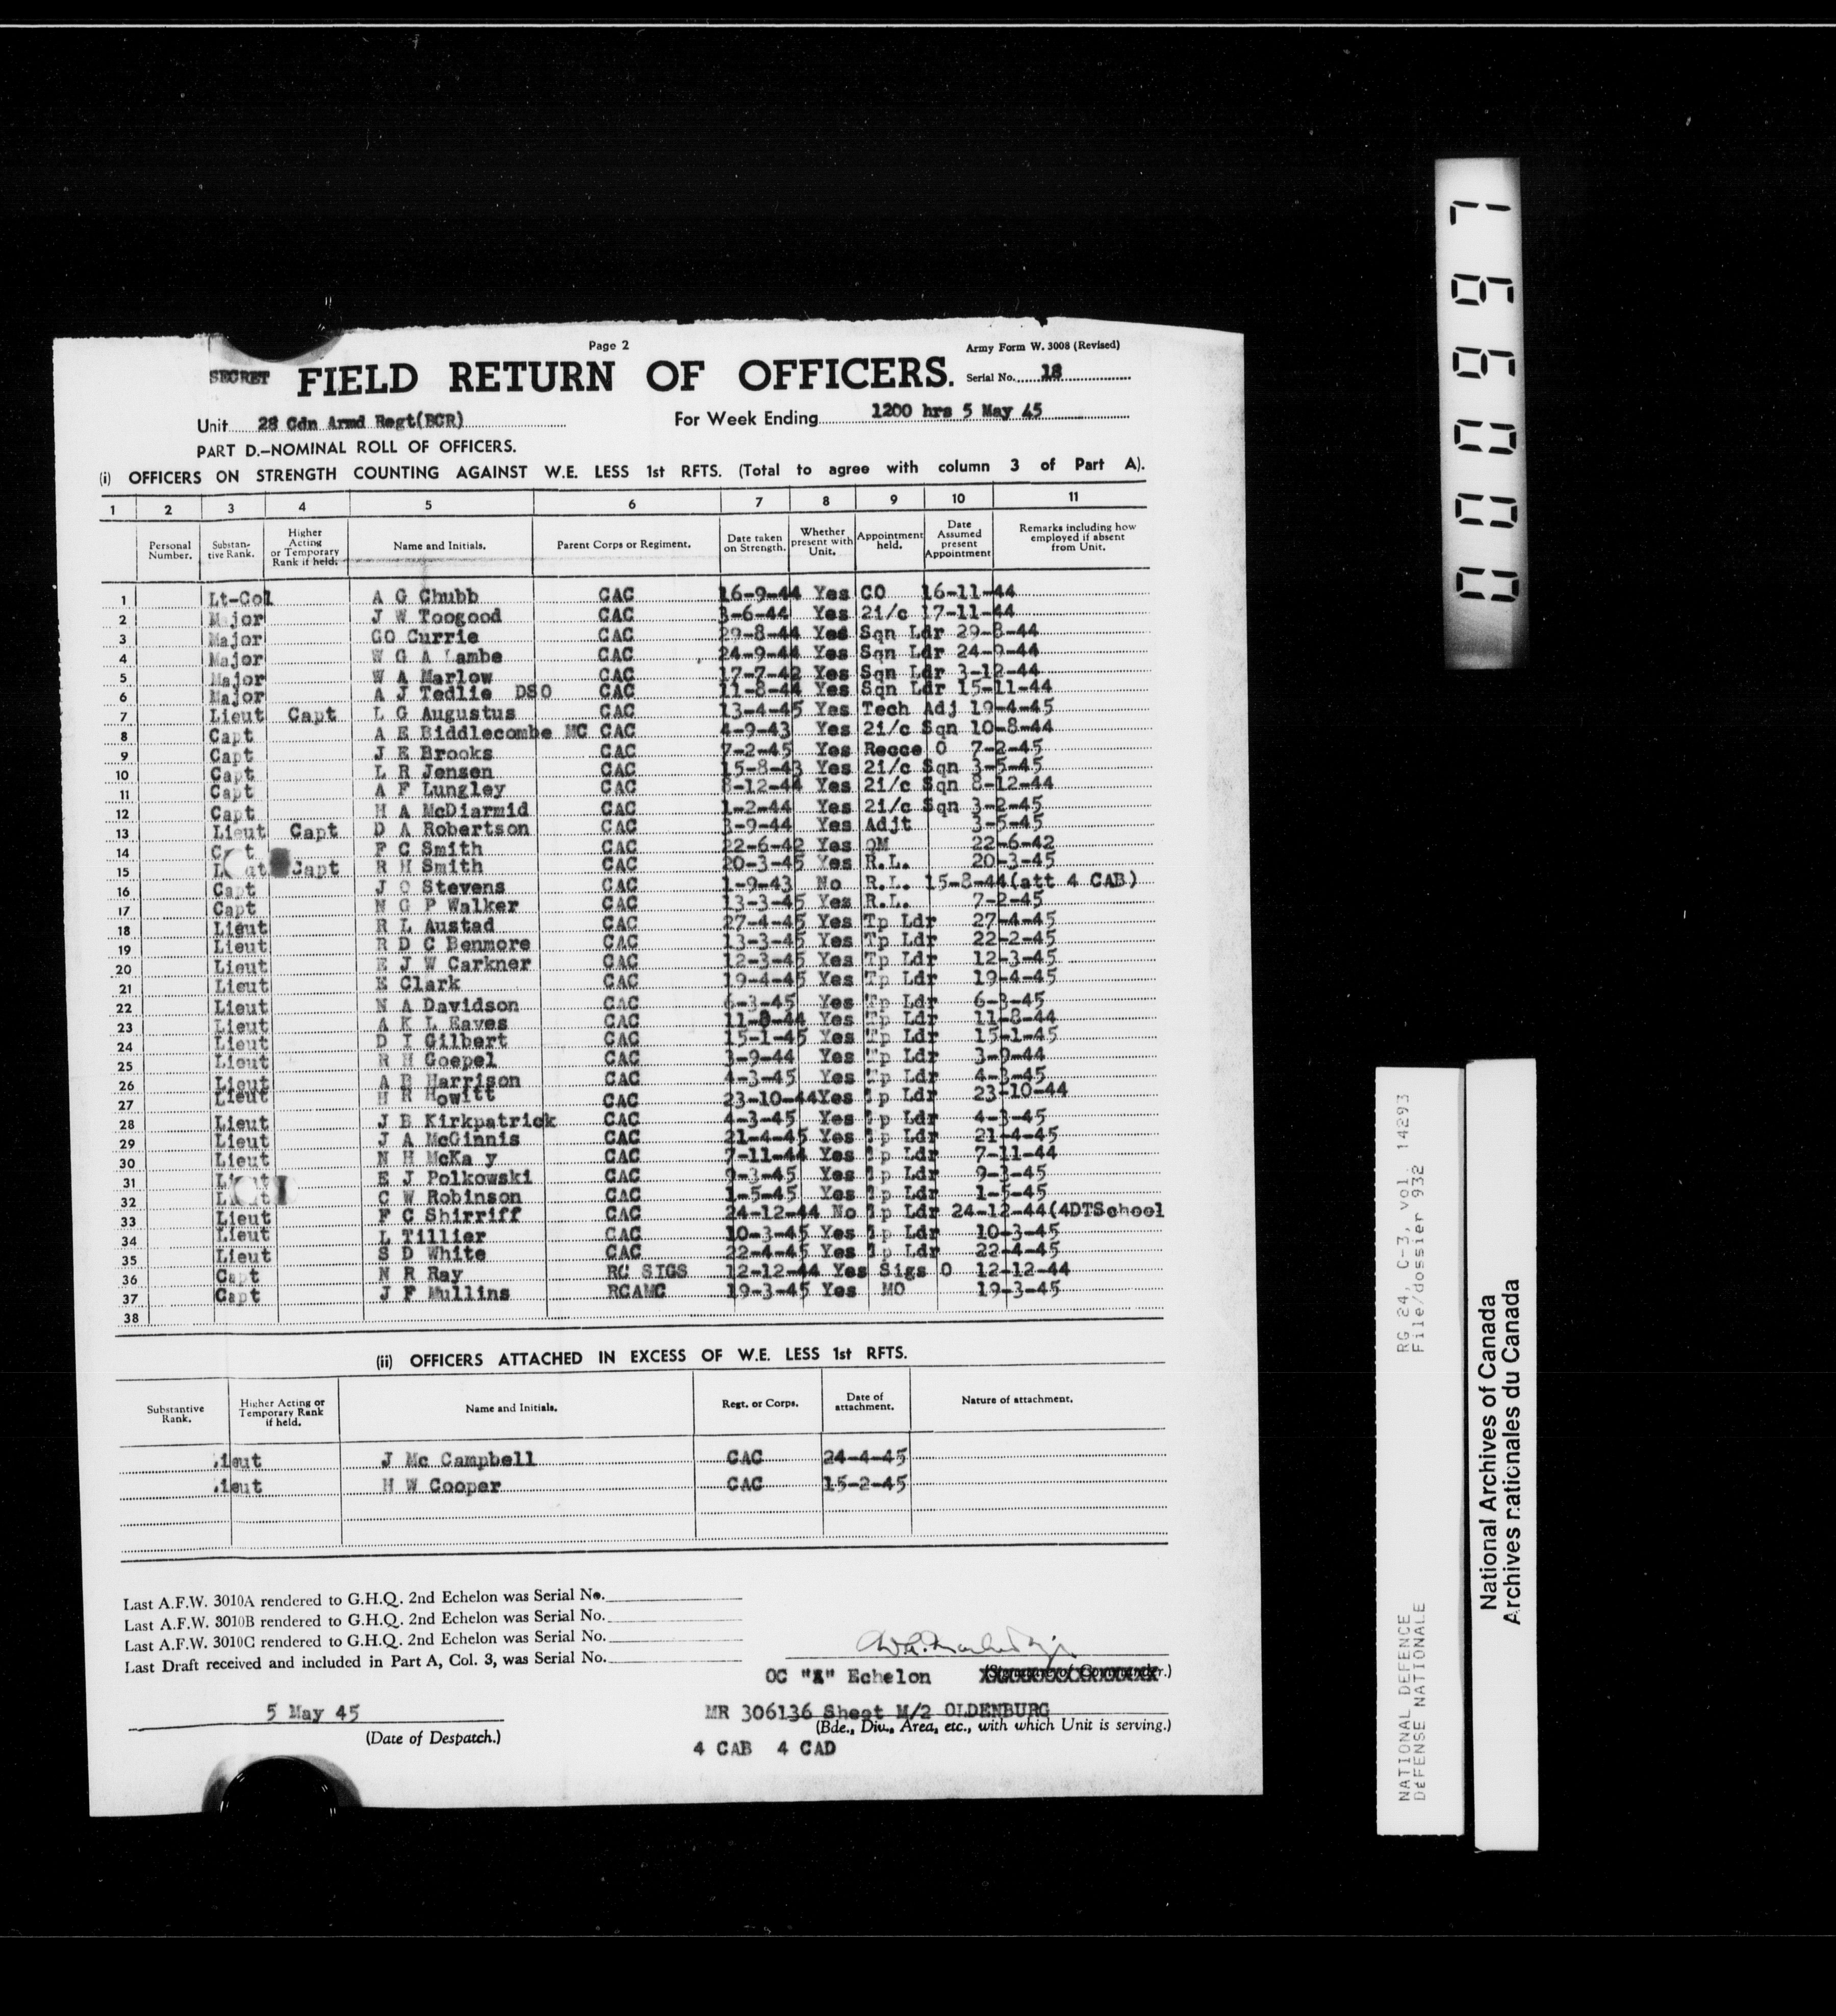 Page 2
Army Form W. 3008 (Revised)
SECRET FIELD RETURN OF OFFICERS. Serial No. 18
Unit 28 Cdn Armd Regt(BCR) For Week Ending 1200 hrs 5 May 45
PART D.—NOMINAL ROLL OF OFFICERS.
(i) OFFICERS ON STRENGTH COUNTING AGAINST W.E. LESS 1st RFTS. (Total to agree with column 3 of Part A).
1 2 3 4 5 6 7 8 9 10 11
Personal Number. Substantive Rank. Higher Acting or Temporary Rank if held. Name and Initials. Parent Corps or Regiment. Date taken on Strength. Whether present with Unit. Appointment held. Date Assumed present Appointment Remarks including how employed if absent from Unit.
1 Lt-Col A G Chubb CAC 16-9-44 Yes CO 16-11-44
2 Major J W Toogood CAC 3-6-44 Yes 2i/c 17-11-44
3 Major GO Currie CAC 29-8-44 Yes Sqn Ldr 29-8-44
4 Major W G A Lambe CAC 24-9-44 Yes Sqn Ldr 24-9-44
5 Major W A Marlow CAC 17-7-42 Yes Sqn Ldr 3-12-44
6 Major A J Tedlie DSO CAC 11-8-44 Yes Sqn Ldr 15-11-44
7 Lieut Capt L G Augustus CAC 13-4-45 Yes Tech Adj 19-4-45
8 Capt A E Biddlecombe MC CAC 4-9-43 Yes 2i/c Sqn 10-8-44
9 Capt J E Brooks CAC 7-2-45 Yes Recce O 7-2-45
10 Capt L R Jensen CAC 15-8-43 Yes 2i/c Sqn 3-5-45
11 Capt A F Lungley CAC 8-12-44 Yes 2i/c Sqn 8-12-44
12 Capt H A McDiarmid CAC 1-2-44 Yes 2i/c Sqn 3-2-45
13 Lieut Capt D A Robertson CAC 3-9-44 Yes Adjt 3-5-45
14 F C Smith CAC 22-6-42 Yes QM 22-6-42
15 Capt R H Smith CAC 20-3-45 Yes R.L. 20-3-45
16 Capt J O Stevens CAC 1-9-43 No R.L. 15-8-44(att 4 CAB)
17 Capt N G P Walker CAC 13-3-45 Yes R.L. 7-2-45
18 Lieut R L Austad CAC 27-4-45 Yes Tp Ldr 27-4-45
19 Lieut R D C Benmore CAC 13-3-45 Yes Tp Ldr 22-2-45
20 Lieut E J W Carkner CAC 12-3-45 Yes Tp Ldr 12-3-45
21 Lieut E Clark CAC 19-4-45 Yes Tp Ldr 19-4-45
22 Lieut N A Davidson CAC 6-3-45 Yes Tp Ldr 6-3-45
23 Lieut A K L Eaves CAC 11-8-44 Yes Tp Ldr 11-8-44
24 Lieut D I Gilbert CAC 15-1-45 Yes Tp Ldr 15-1-45
25 Lieut R H Goepel CAC 3-9-44 Yes Tp Ldr 3-9-44
26 Lieut A B Harrison CAC 4-3-45 Yes Tp Ldr 4-3-45
27 Lieut H R Howitt CAC 23-10-44Yes Tp Ldr 23-10-44
28 Lieut J B Kirkpatrick CAC 4-3-45 Yes Tp Ldr 4-3-45
29 Lieut J A McGinnis CAC 21-4-45 Yes Tp Ldr 21-4-45
30 Lieut N H McKa y CAC 7-11-44 Yes Tp Ldr 7-11-44
31 E J Polkowski CAC 9-3-45 Yes Tp Ldr 9-3-45
32 C W Robinson CAC 1-5-45 Yes Tp Ldr 1-5-45
33 Lieut F C Shirriff CAC 24-12-44 No Tp Ldr 24-12-44(4DTSchool
34 Lieut L Tillier CAC 10-3-45 Yes Tp Ldr 10-3-45
35 Lieut S D White CAC 22-4-45 Yes Tp Ldr 22-4-45
36 Capt N R Ray RC SIGS 12-12-44 Yes Sigs O 12-12-44
37 Capt J F Mullins RCAMC 19-3-45 Yes MO 19-3-45
38
(ii) OFFICERS ATTACHED IN EXCESS OF W.E. LESS 1st RFTS.
Substantive Rank. Higher Acting or Temporary Rank if held. Name and Initials. Regt. or Corps. Date of attachment. Nature of attachment.
Lieut J Mc Campbell CAC 24-4-45
Lieut H W Cooper CAC 15-2-45
Last A.F.W. 3010A rendered to G.H.Q. 2nd Echelon was Serial No.
Last A.F.W. 3010B rendered to G.H.Q. 2nd Echelon was Serial No.
Last A.F.W. 3010C rendered to G.H.Q. 2nd Echelon was Serial No.
Last Draft received and included in Part A, Col. 3, was Serial No.
OC "A" Echelon (Signature of Commander.)
5 May 45 MR 306136 Sheet M/2 OLDENBURG
(Date of Despatch.) (Bde., Div., Area, etc., with which Unit is serving.)
4 CAB 4 CAD
00000997
RG 24, C-3, vol. 14293
File/dossier 932
NATIONAL DEFENCE
DÉFENSE NATIONALE
National Archives of Canada
Archives nationales du Canada